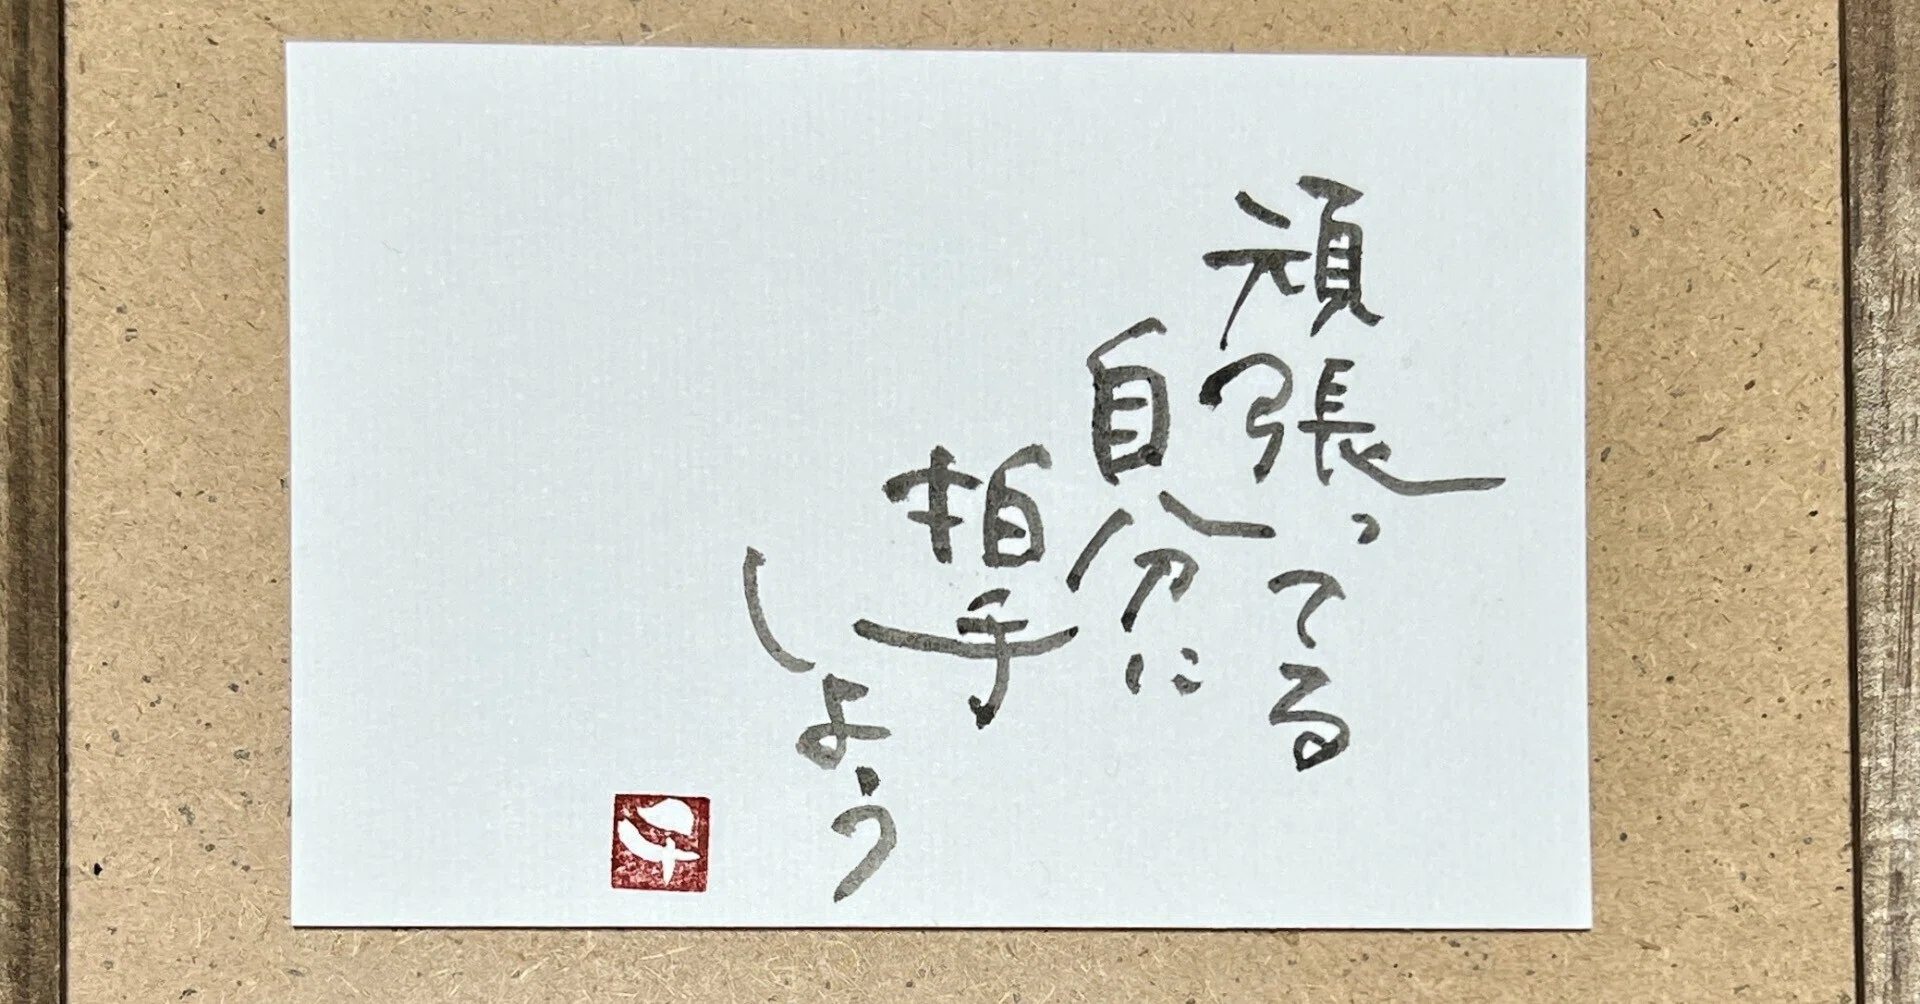 頑張ってる
自分に
拍手
しよう